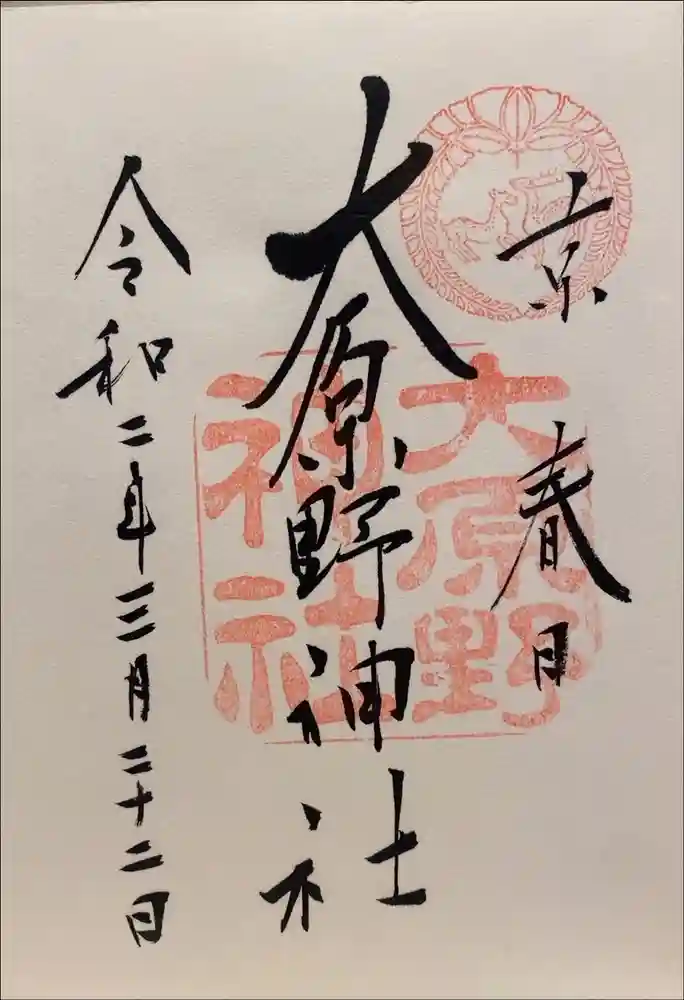 京春日
大原野神社
令和二年三月二十二日
大原野
神社